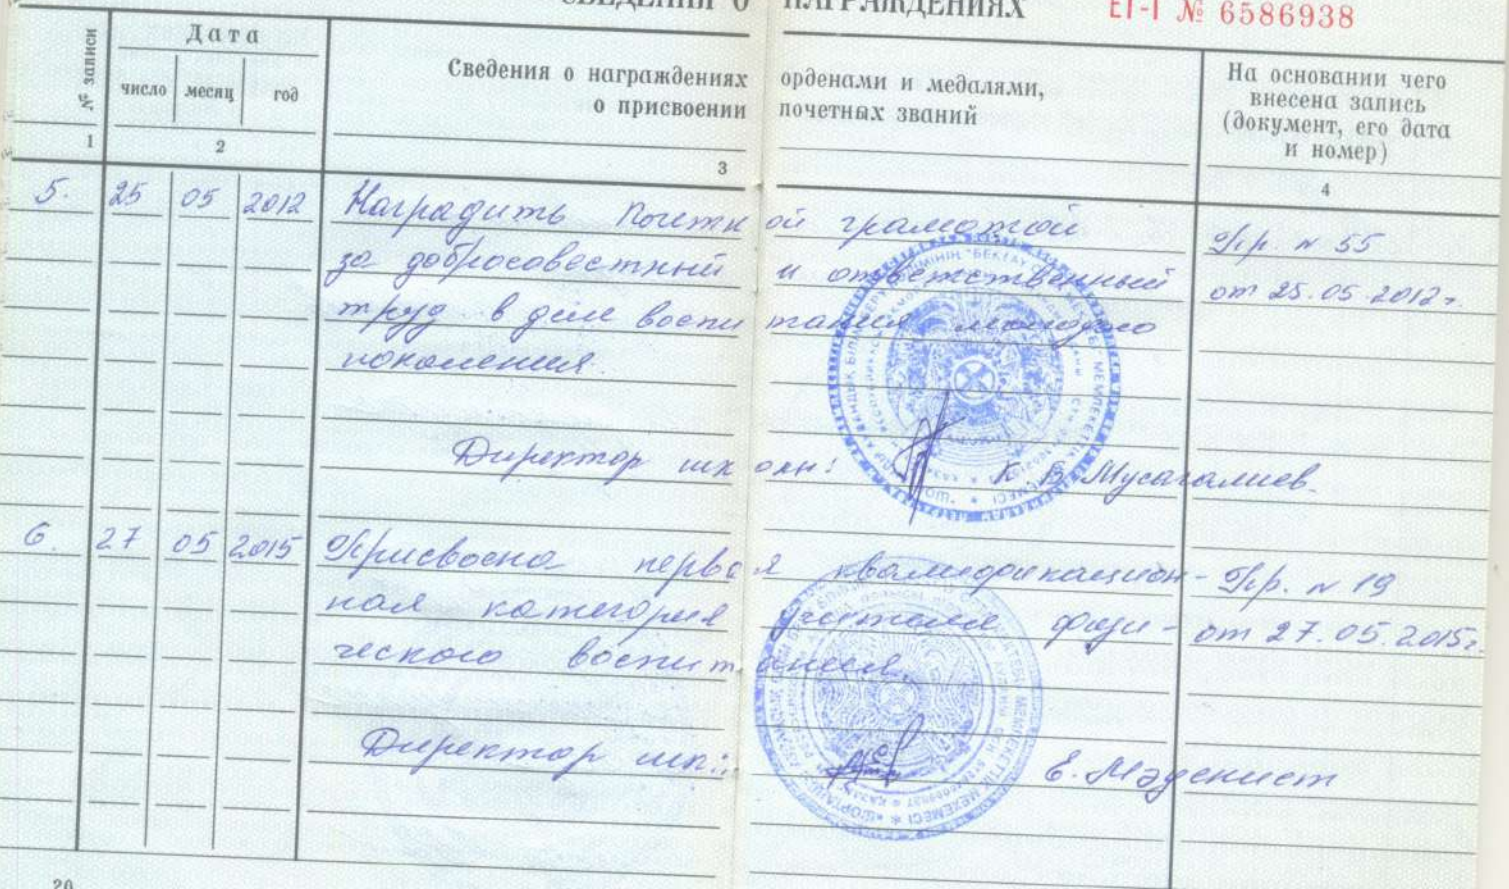 СВЕДЕНИЯ О НАГРАЖДЕНИЯХ ЕТ-I № 6586938
№ записи
Дата
число месяц год
Сведения о награждениях орденами и медалями,
о присвоении почетных званий
На основании чего
внесена запись
(документ, его дата
и номер)
1 2 3 4
5. 25 05 2012 Наградить Почетной грамотой Пр. № 55
за добросовестный и ответственный от 25.05.2012г.
труд в деле воспитания молодого
поколения.
Директор школы: К. Б. Мусагалиев.
6. 27 05 2015 Присвоена первая квалификацион- Пр. № 19
ная категория учителя физи- от 27.05.2015г.
ческого воспитания.
Директор шк.: Е. Мәдениет
20